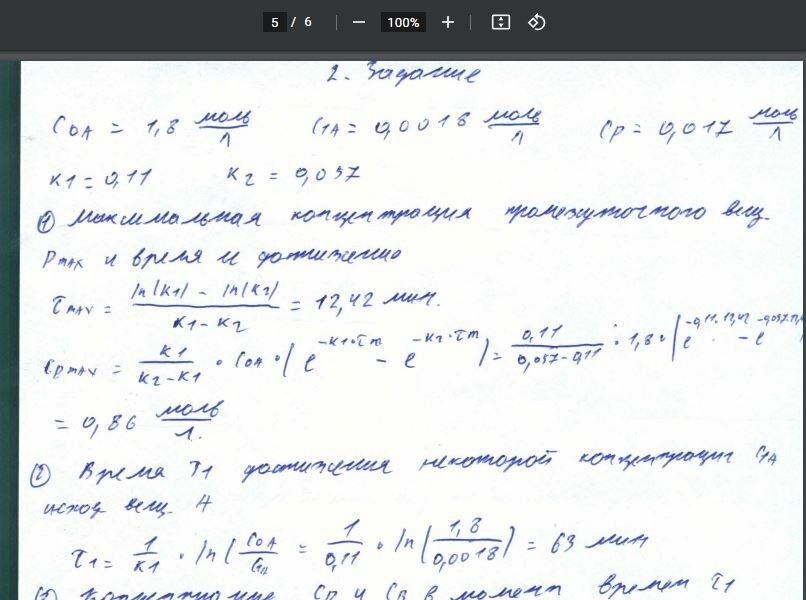 5 / 6 100%
2. Задание
C0A = 1,8 моль/л C1A = 0,0018 моль/л Cp = 0,017 моль/л
K1 = 0,11 K2 = 0,057
① Максимальная концентрация промежуточного вещ.
Pmax и время и достижению
τmax = ln(K1) - ln(K2) / K1 - K2 = 12,42 мин.
Cpmax = K1 / K2 - K1 · C0A · (e^-K1·τm - e^-K2·τm) = 0,11 / 0,057 - 0,11 · 1,8 · (e^-0,11·12,42 - e^-0,057·12,4
= 0,86 моль/л.
② Время τ1 достижения некоторой концентрации C1A
исход вещ. A
τ1 = 1/K1 · ln(C0A/C1A = 1/0,11 · ln(1,8/0,0018) = 63 мин
CP и CB в момент времен τ1